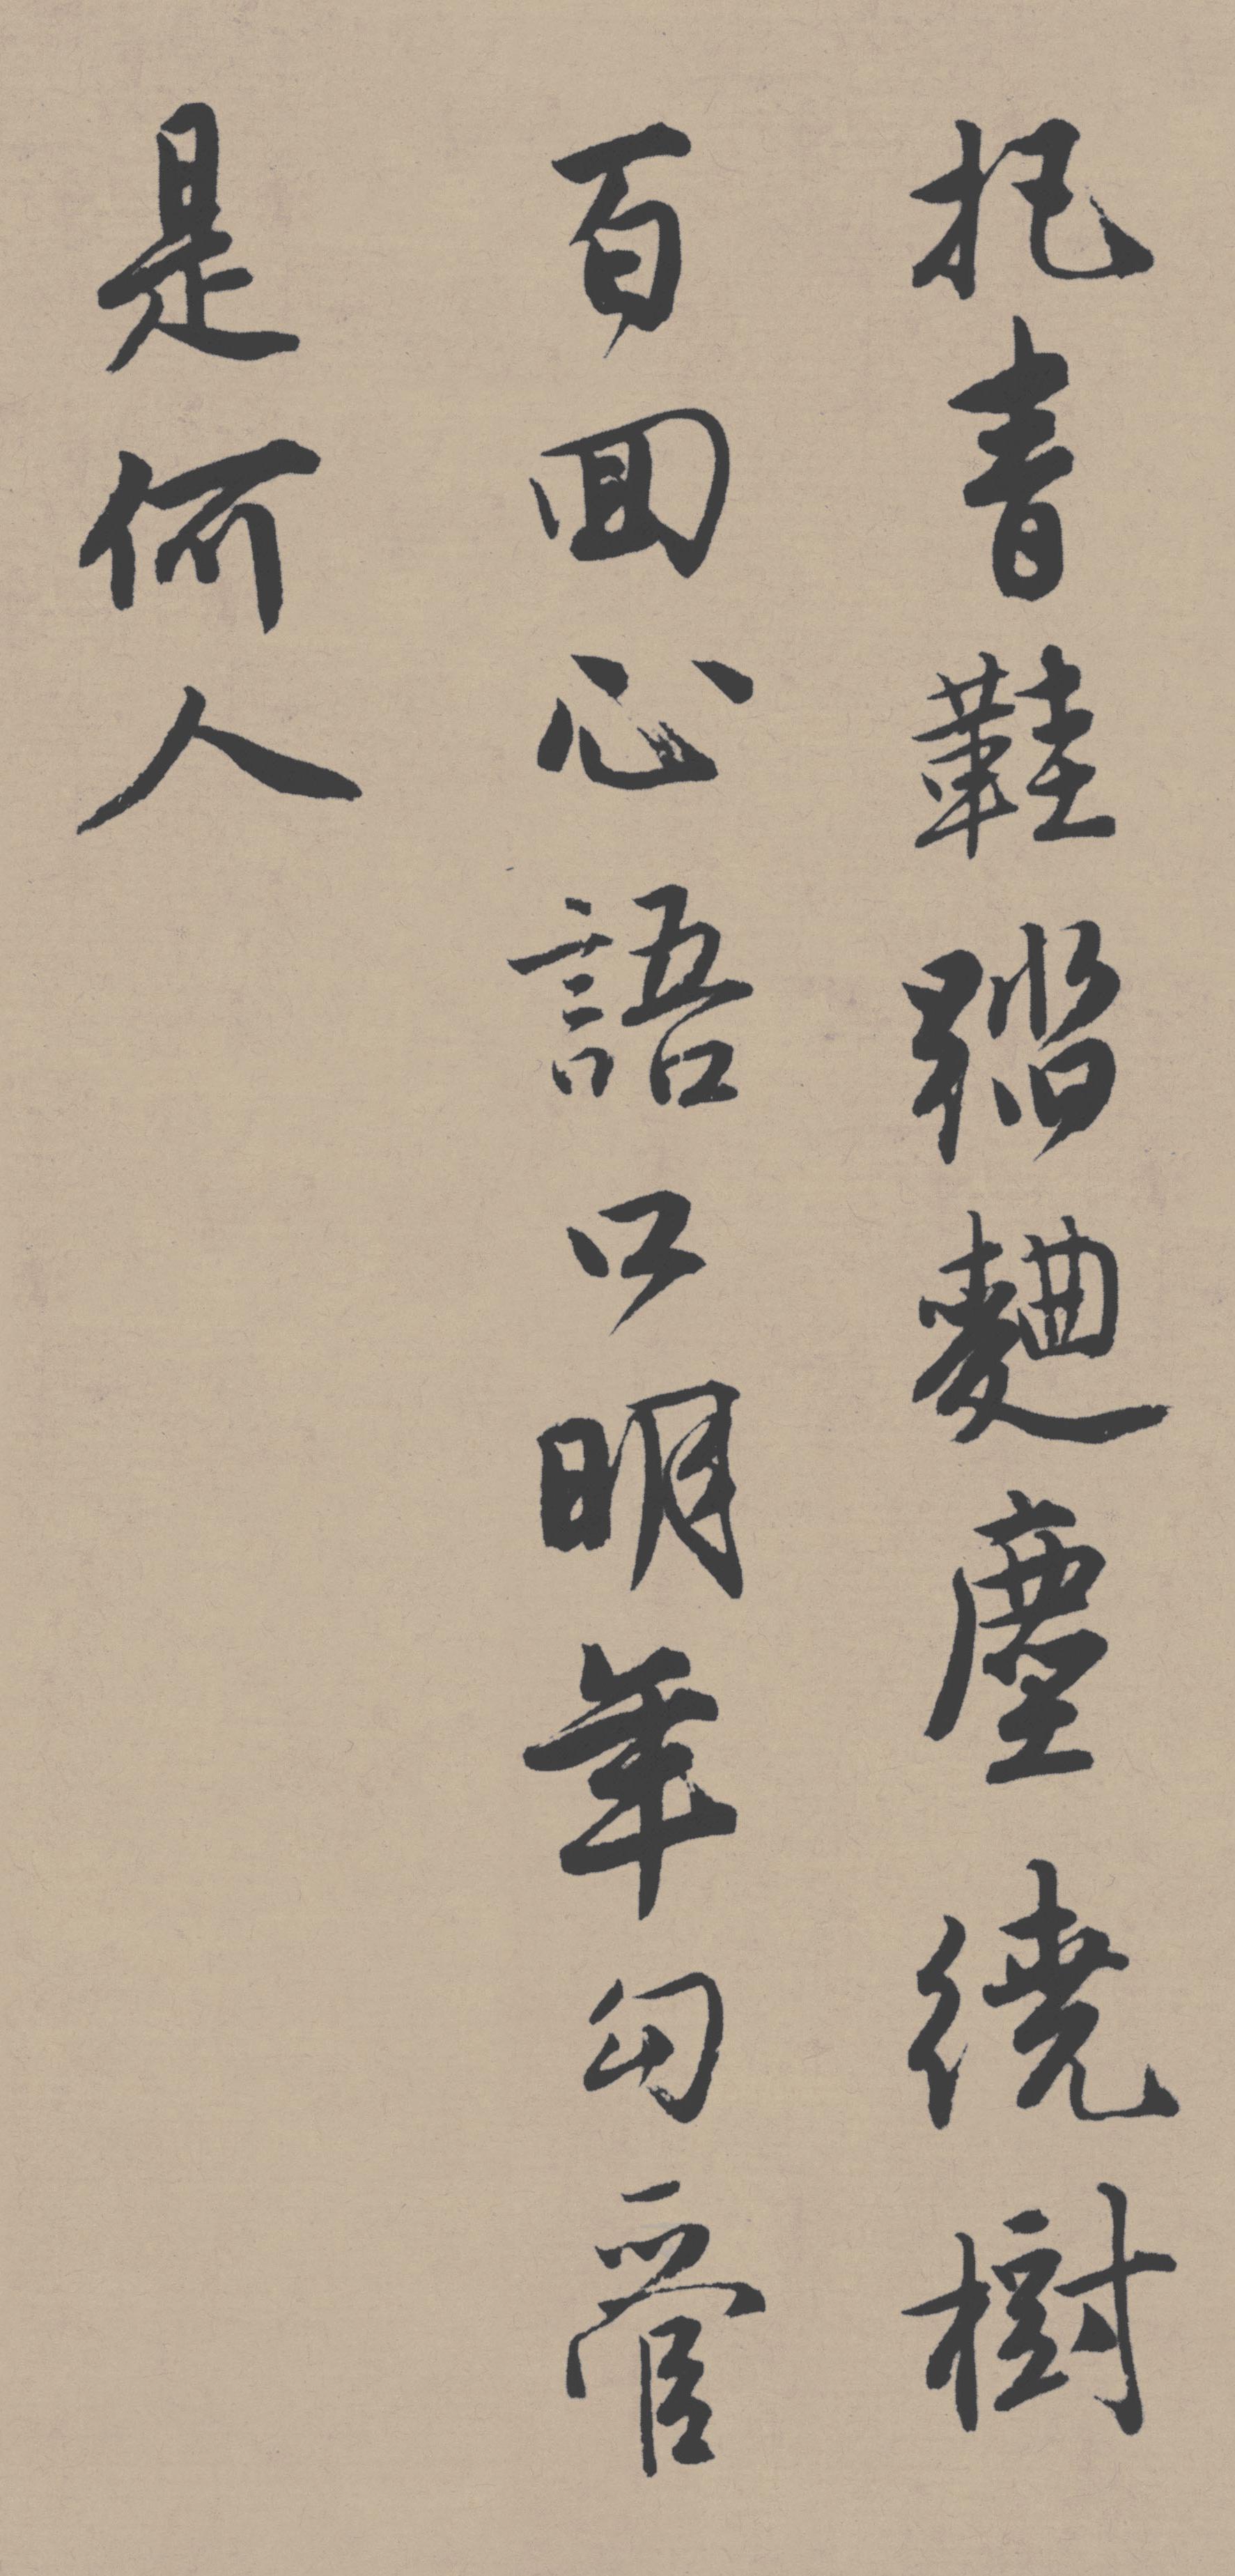 抛青鞋踏麴塵繞樹
百回心語口明年勾管
是何人